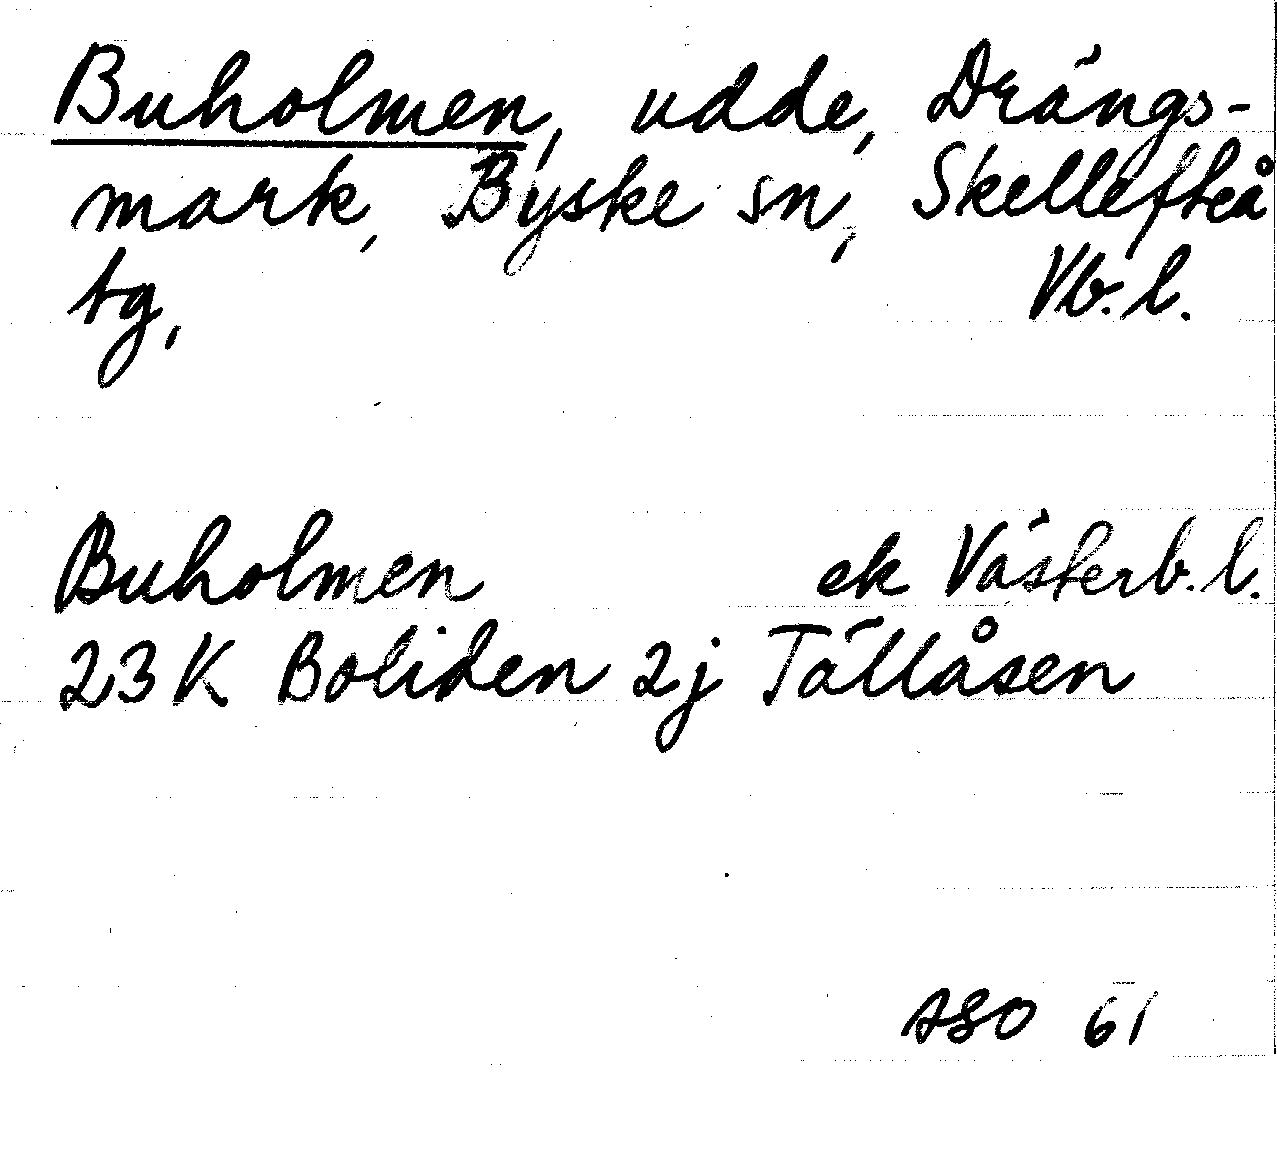 Buholmen, udde, Drängs-
mark, Byske sn, Skellefteå
tg, Vb. l.
Buholmen ek Västerb. l.
23 K Boliden 2j Tällåsen
ASO 61